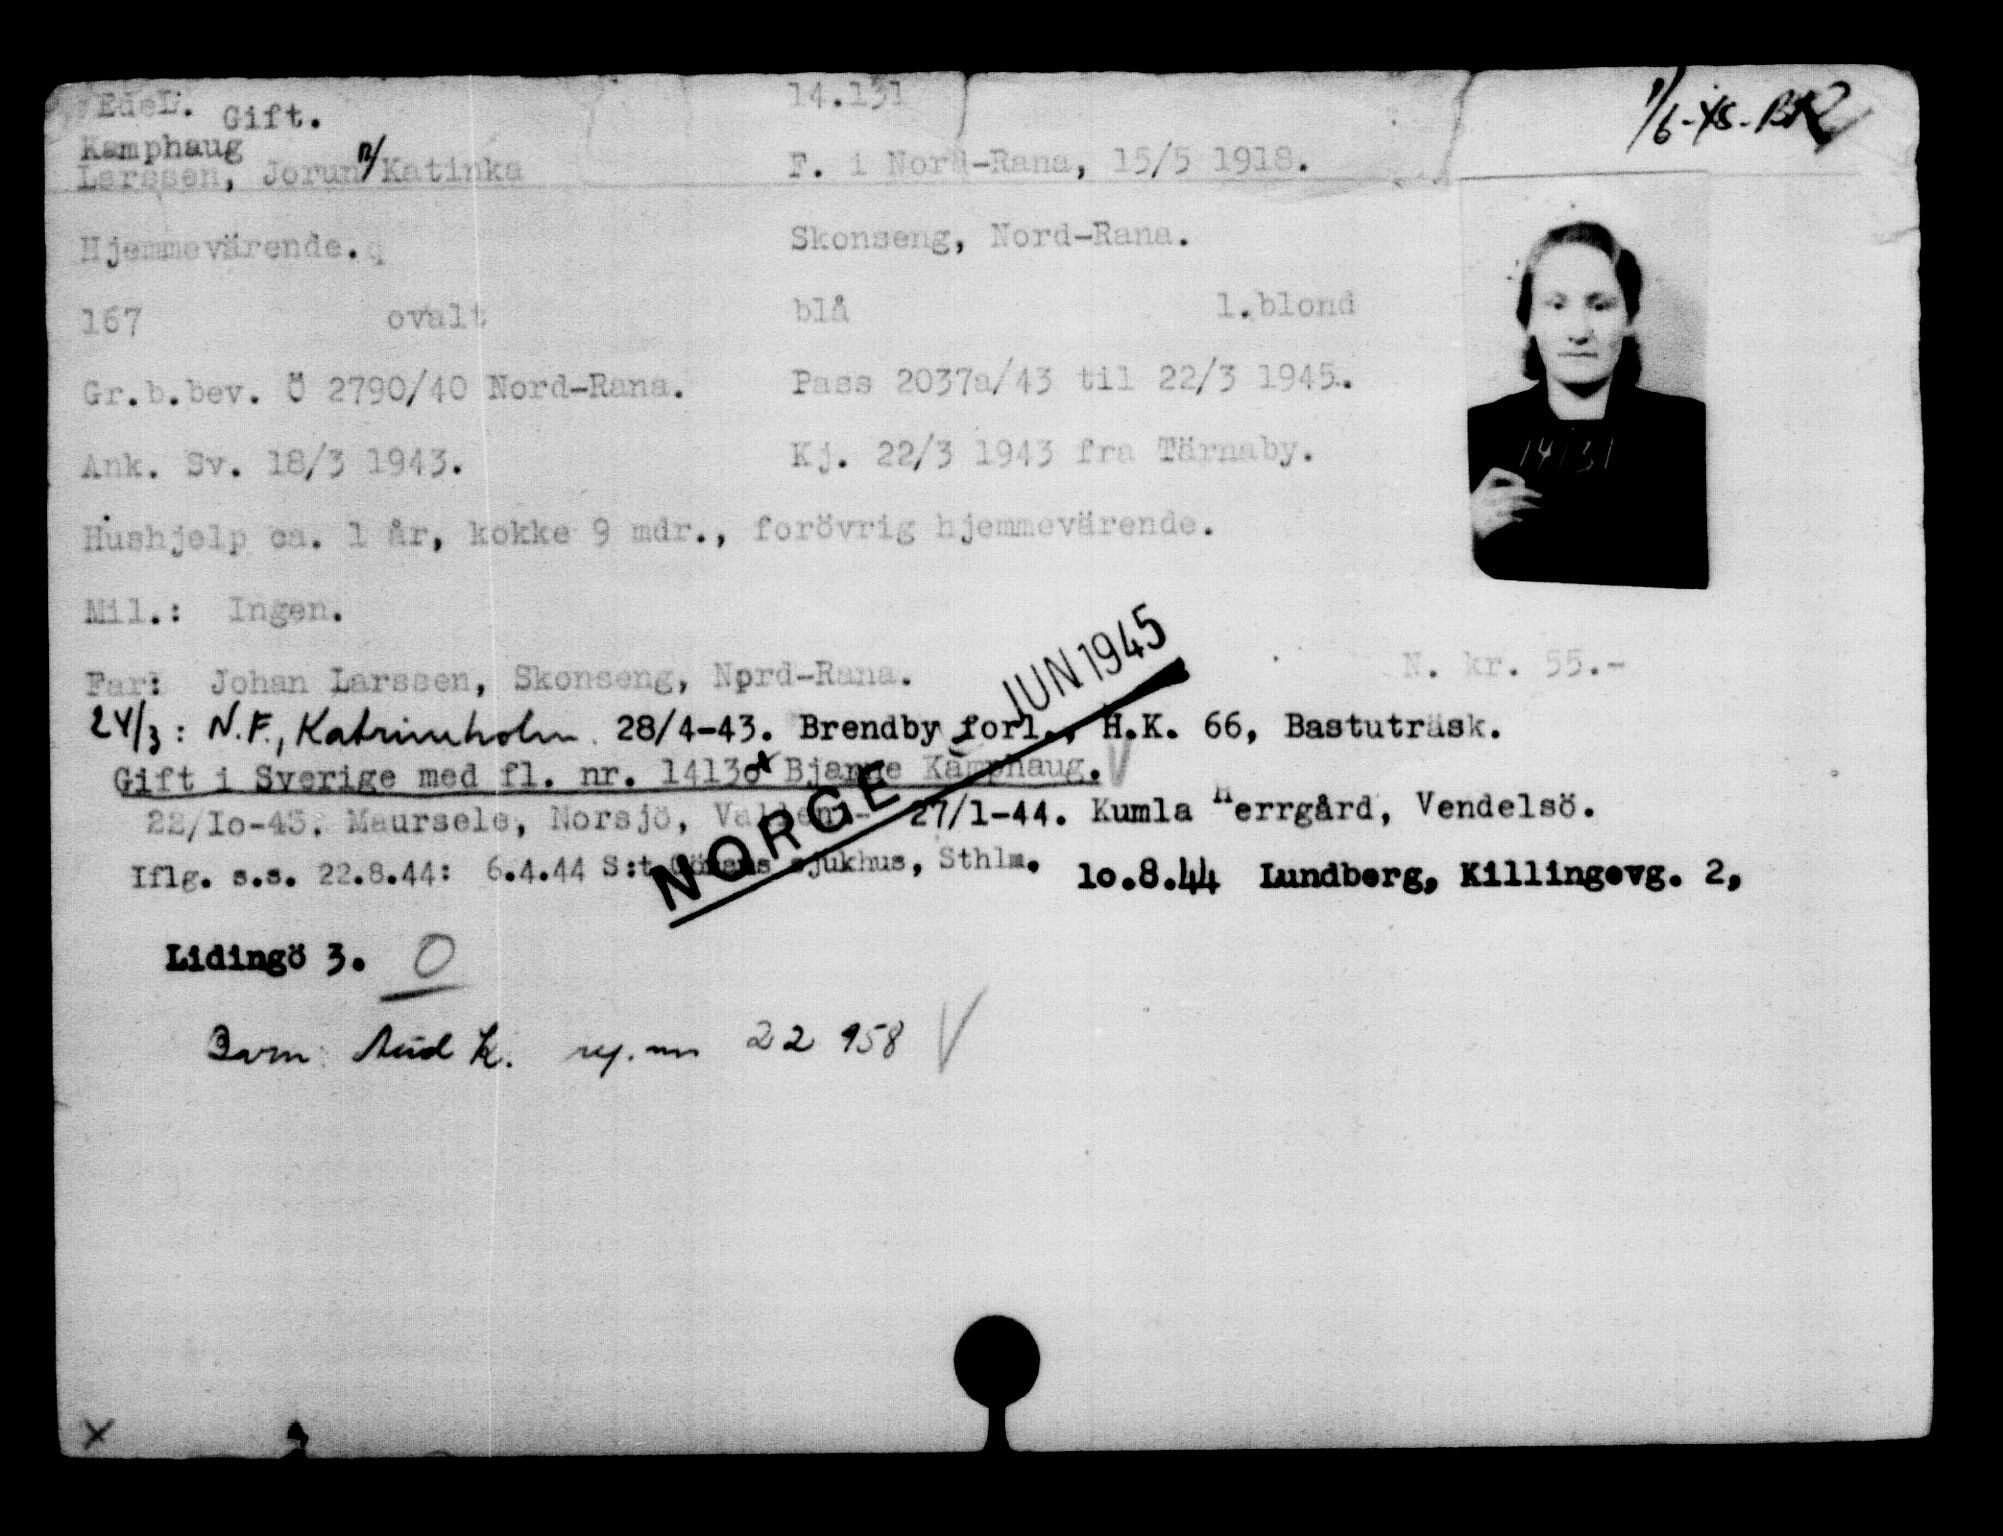 Gift. 14.131 1/6-45-BR
Kamphaug
Larssen, Jorunn Katinka F. i Nord-Rana, 15/5 1918.
Hjemmevärende. Skonseng, Nord-Rana.
167 ovalt blå l.blond
Gr.b.bev. Ö 2790/40 Nord-Rana. Pass 2037a/43 til 22/3 1945.
14131
Ank. Sv. 18/3 1943. Kj. 22/3 1943 fra Tärnaby.
Hushjelp ca. 1 år, kokke 9 mdr., forövrig hjemmevärende.
Mil.: Ingen.
JUN 1945
Far: Johan Larssen, Skonseng, Nord-Rana. N. kr. 55.-
24/3: N.F., Katrineholm. 28/4-43. Brendby forl., H.K. 66, Bastuträsk.
Gift i Sverige med fl. nr. 14130 Bjarne Kamphaug. V
22/10-43. Maursele, Norsjö, 27/1-44. Kumla Herrgård, Vendelsö.
NORGE
Iflg. s.s. 22.8.44: 6.4.44 S:t Görans sjukhus, Sthlm. 10.8.44 Lundberg, Killingevg. 2,
Lidingö 3. O
Barn: Aud K. reg. nr 22 958 V
X